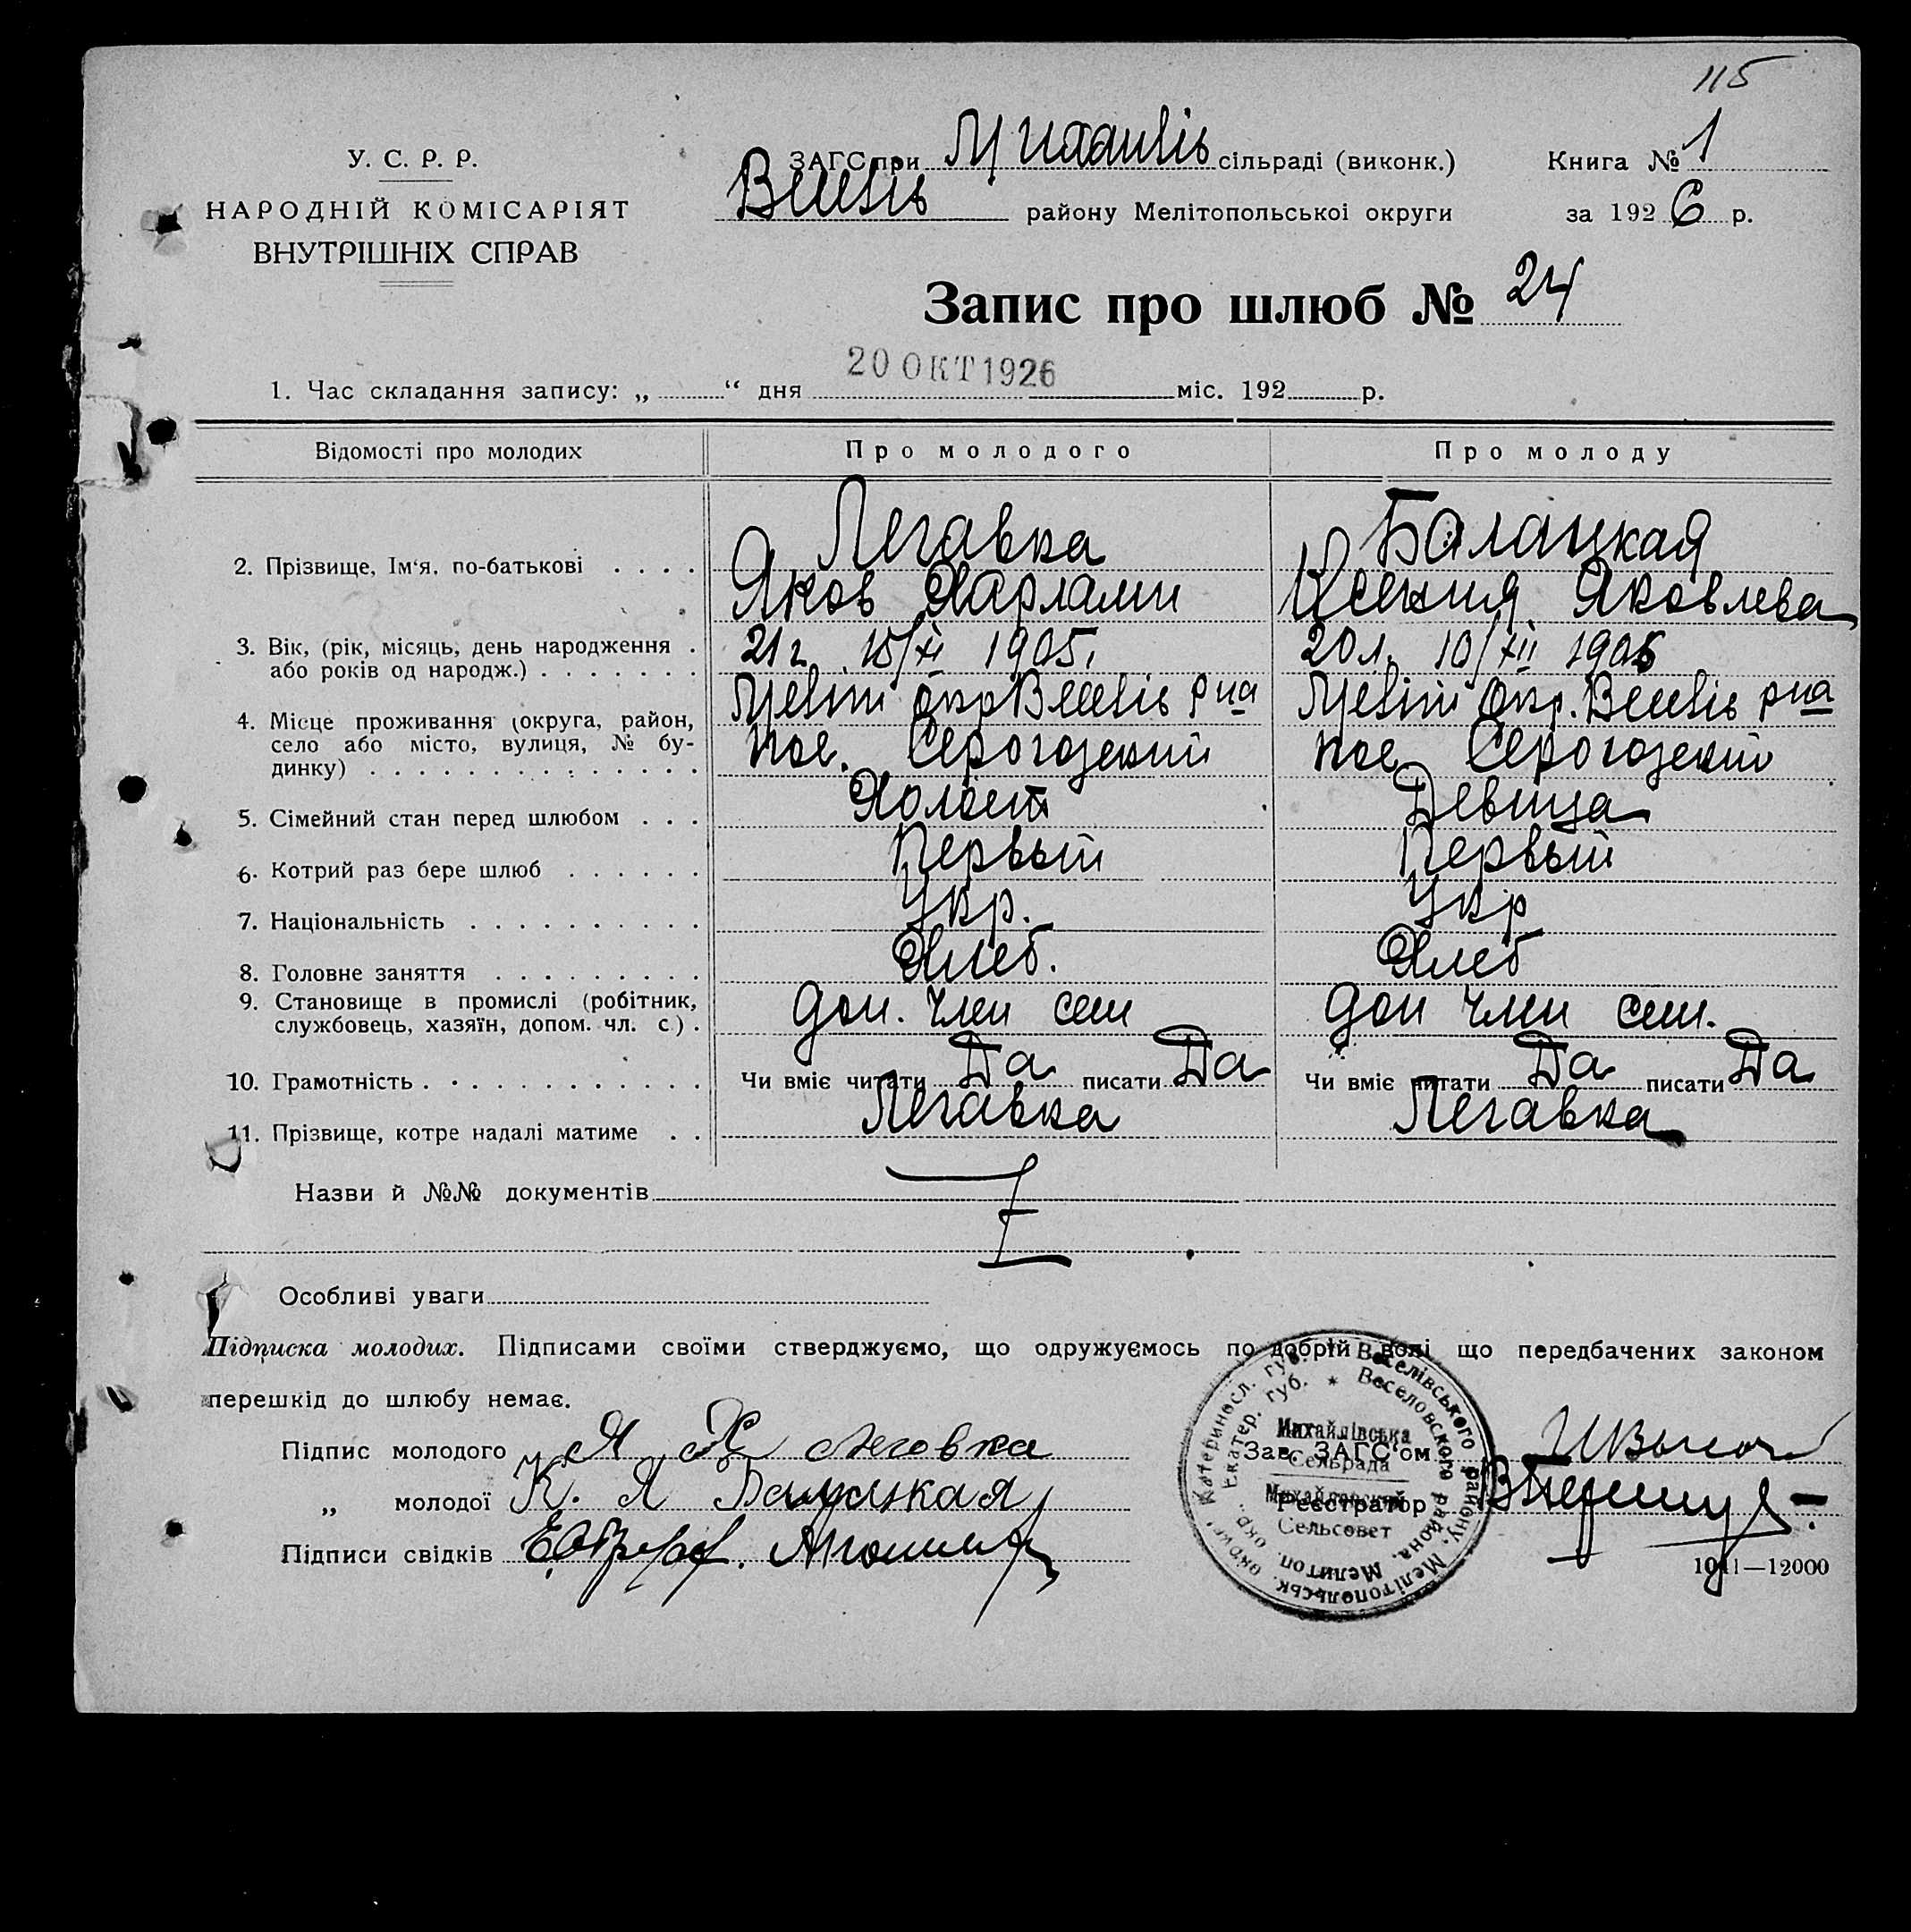 115
У. С. Р. Р.
НАРОДНІЙ КОМІСАРІЯТ
ВНУТРІШНІХ СПРАВ
ЗАГС при Михайлів сільраді (виконк.) Книга № 1
Весел​ів району Мелітопольської округи за 192 6 р.
Запис про шлюб № 24
1. Час складання запису: „ “ дня 20 ОКТ 1926 міс. 192 р.
Відомості про молодих Про молодого Про молоду
2. Прізвище, Ім‘я, по-батькові . . . .
Легавка
Яков Харлами
Балацкая
Ксения Яковлева
3. Вік, (рік, місяць, день народження .
або років од народж.) . . . . . . .
21 г. 15/XI 1905.
20 л. 10/XII 1906
4. Місце проживання (округа, район,
село або місто, вулиця, № бу-
динку) . . . . . . . . . . . . . .
Меліт окр Веселів р на
пос. Серогозский
Меліт окр. Веселів р на
пос Серогозский
5. Сімейний стан перед шлюбом . . . Холост Девица
6. Котрий раз бере шлюб . . . . . . Первый Первый
7. Національність . . . . . . . . . . Укр. Укр
8. Головне заняття . . . . . . . . . Хлеб. Хлеб
9. Становище в промислі (робітник,
службовець, хазяїн, допом. чл. с.) .
доп. член сем
доп член сем.
10. Грамотність . . . . . . . . . . . . Чи вміє читати Да писати Да Чи вміє читати Да писати Да
11. Прізвище, котре надалі матиме . . Легавка Легавка
Назви й №№ документів
Особливі уваги
Підписка молодих. Підписами своїми стверджуємо, що одружуємось по добрій волі що передбачених законом
перешкід до шлюбу немає.
Підпис молодого Я Х Леговка
„ молодої К. Я Балацкая
Підписи свідків
Зав. ЗАГС‘ом
Реєстратор
Катериносл. губ. * Веселівського району, Мелітопольськ. округ
Екатер. губ. * Веселовского района, Мелитоп. окр.
Михайлівська
Сельрада
Михайловский
Сельсовет
1011—12000